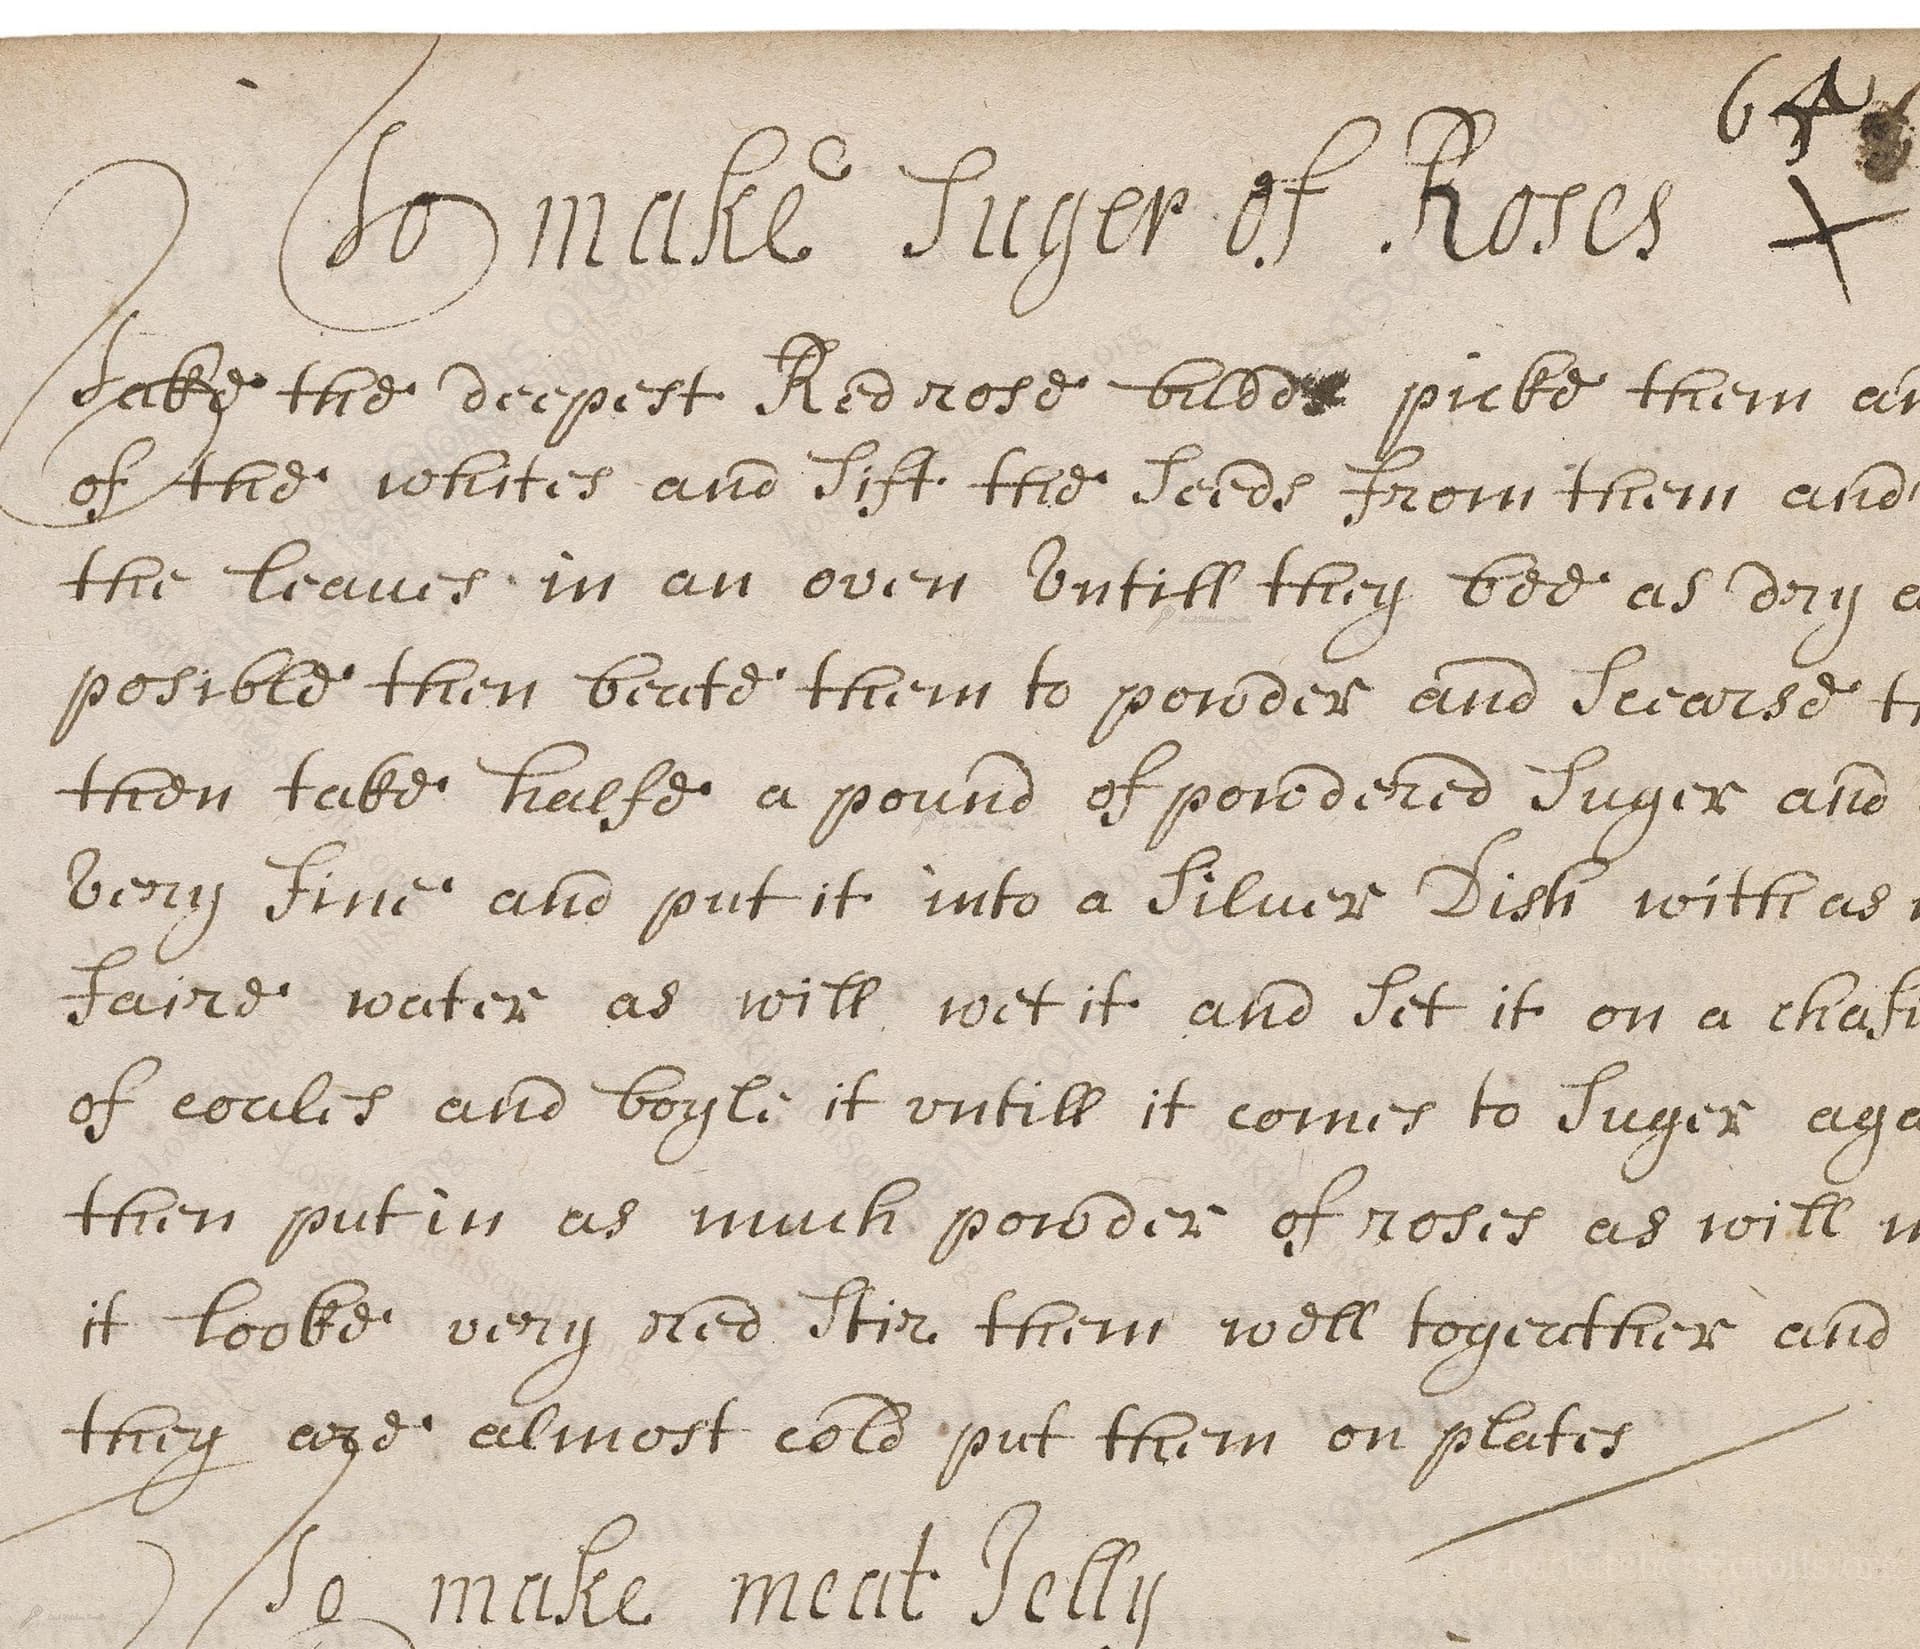 64
To make Suger of Roses
Take the deepest Red rose budds picke them
of the whites and sift the seeds from them and
the leaues in an oven Untill they bee as dry
posible then beate them to powder and scearse
then take halfe a pound of powdered suger and
Very fine and put it into a silver Dish with as
faire water as will wet it and set it on a
of coales and boyle it vntill it comes to suger
then put in as much powder of roses as will
it looke very red stir them well togeather and
they are almost cold put them on plates
To make meat Jelly